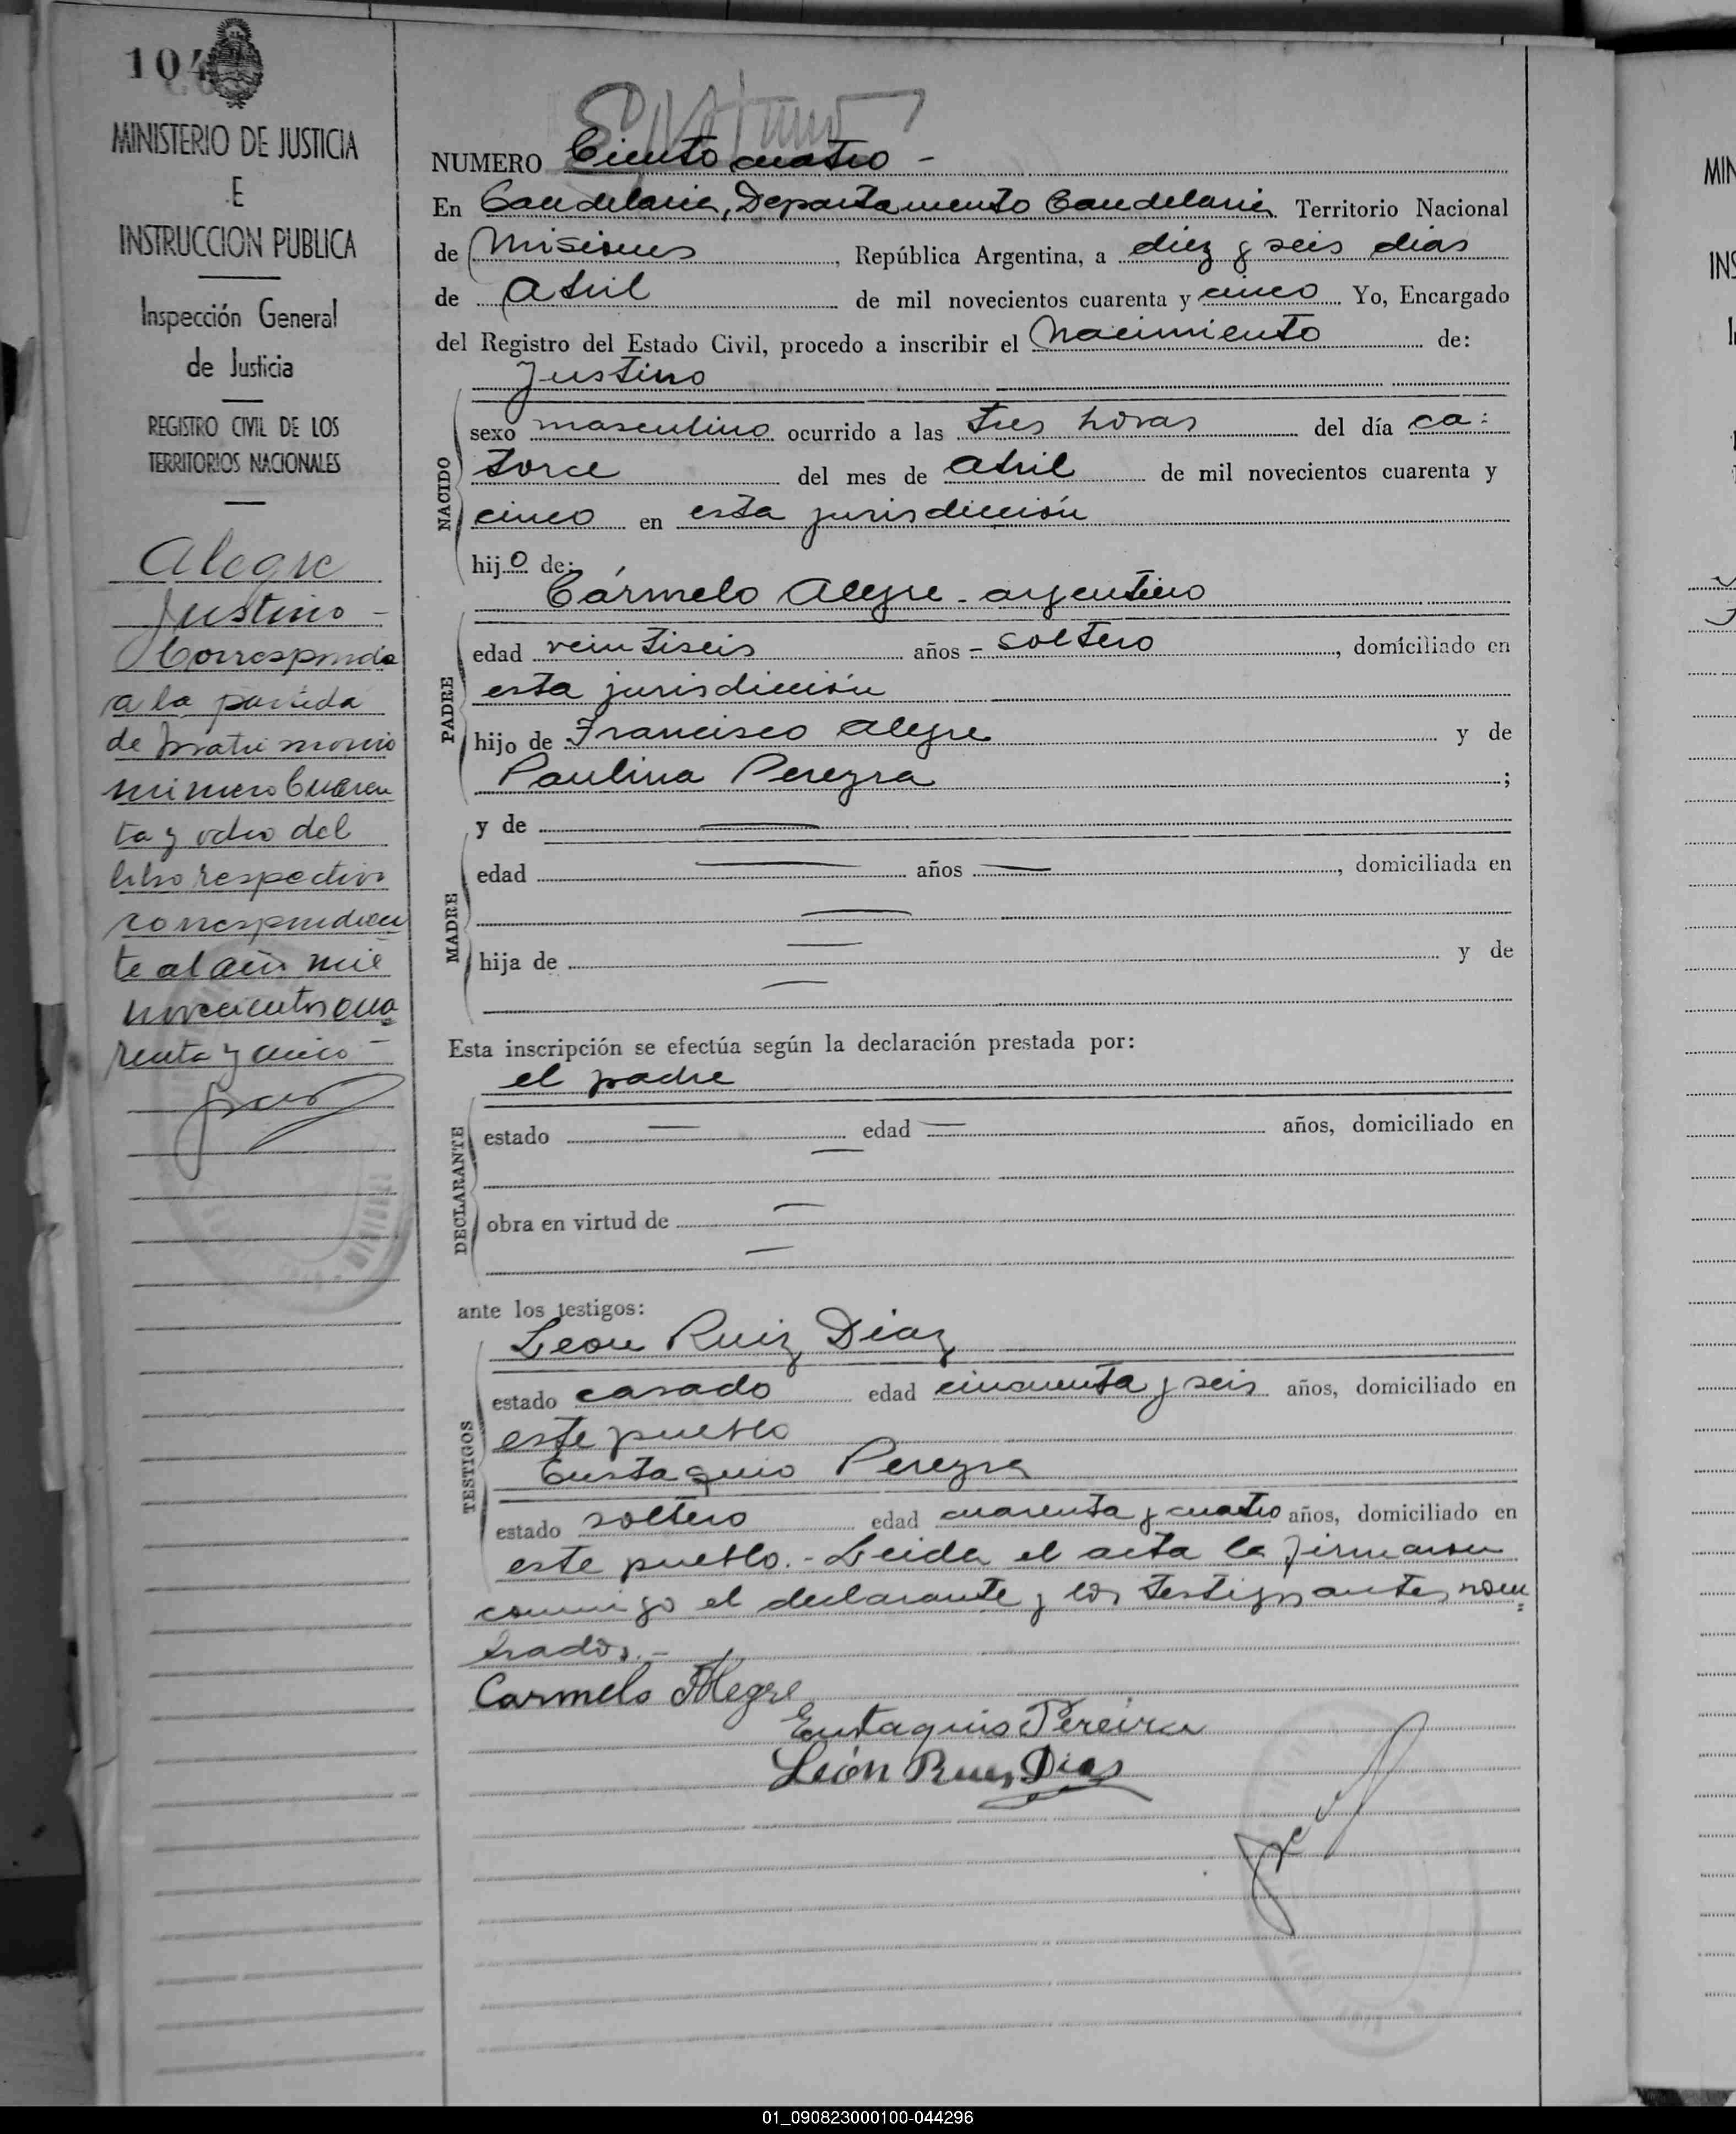 104
MINISTERIO DE JUSTICIA
E
INSTRUCCION PUBLICA
Inspección General
de Justicia
REGISTRO CIVIL DE LOS
TERRITORIOS NACIONALES
Alegre
Justino -
Corresponde
a la partida
de matrimonio
número Cuaren
ta y ocho del
libro respectivo
correspondien
te al año mil
novecientos cua
renta y cinco -
NUMERO Ciento cuatro -
En Candelaria, Departamento Candelaria Territorio Nacional
de Misiones, República Argentina, a diez y seis dias
de Abril de mil novecientos cuarenta y cinco Yo, Encargado
del Registro del Estado Civil, procedo a inscribir el Nacimiento de:
Justino
NACIDO
sexo masculino ocurrido a las tres horas del día ca:
torce del mes de Abril de mil novecientos cuarenta y
cinco en esta jurisdicción
hijo de:
Cármelo Alegre - argentino
PADRE
edad veintiseis años - soltero, domiciliado en
esta jurisdicción
hijo de Francisco Alegre y de
Paulina Pereyra ;
MADRE
y de
edad años , domiciliada en
hija de y de
Esta inscripción se efectúa según la declaración prestada por:
el padre
DECLARANTE
estado edad años, domiciliado en
obra en virtud de
ante los testigos:
Leon Ruiz Diaz
TESTIGOS
estado casado edad cincuenta y seis años, domiciliado en
este pueblo
Eustaquio Pereyra
estado soltero edad cuarenta y cuatro años, domiciliado en
este pueblo. - Leida el acta la firmaron
conmigo el declarante y los testigos antes nom
brados. -
Carmelo Alegre
Eustaquio Pereira
León Ruiz Dias
01_090823000100-044296